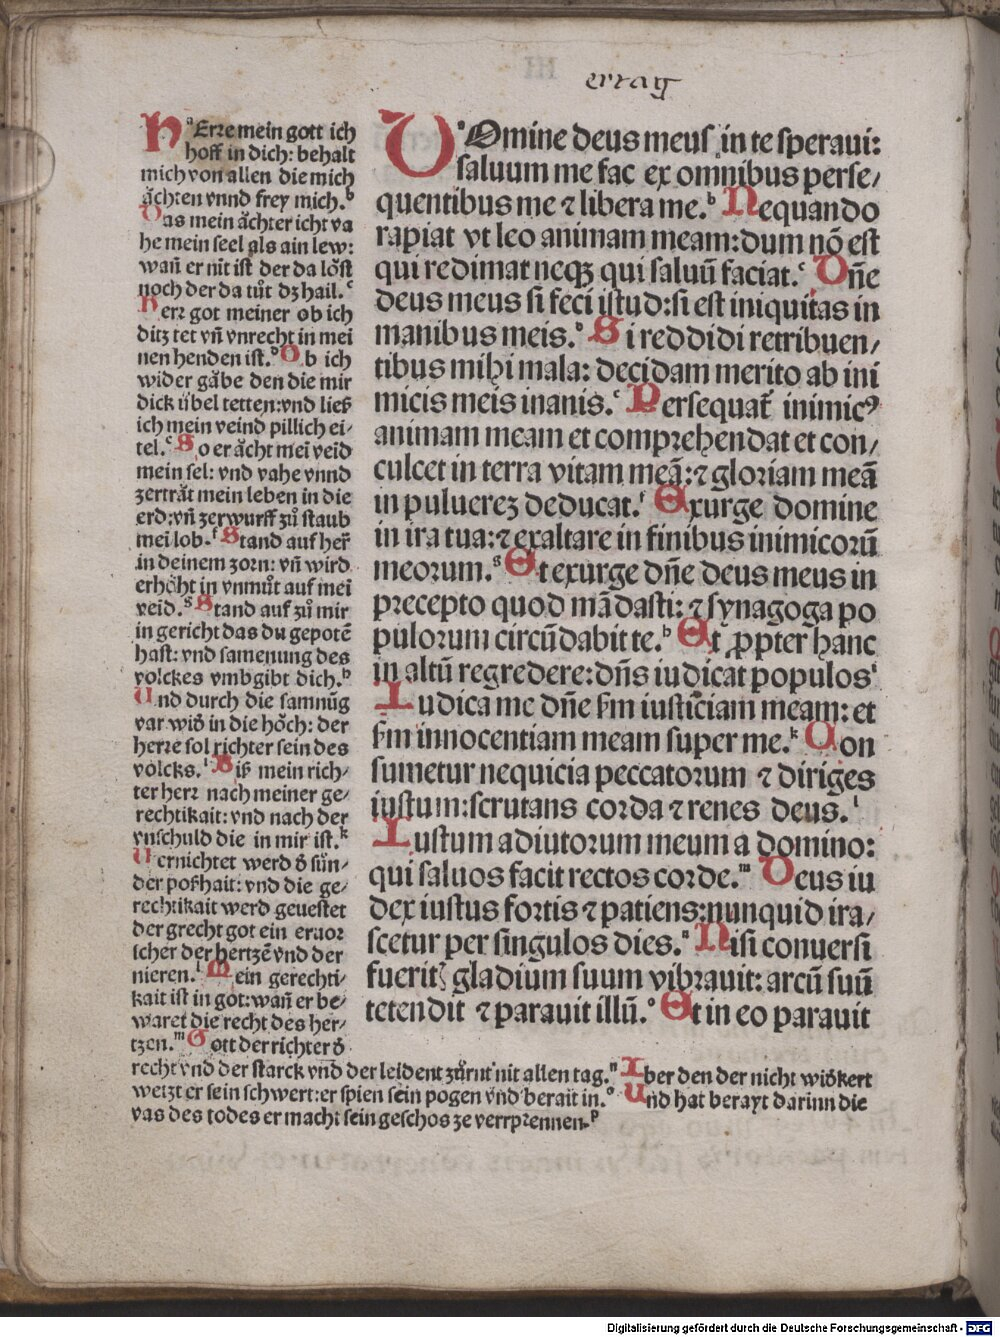 erray
Herre mein gott ich
hoff in dich: behalt
mich von allen die mich
ächten vnnd frey mich.ᵇ
Das mein ächter icht va
he mein seel als ain lew:
wañ er nit ist der da löst
noch der da tůt dz hail.ᶜ
Herr got meiner ob ich
ditz tet vñ vnrecht in mei
nen henden ist.ᵈ Ob ich
wider gäbe den die mir
dick übel tetten: vnd ließ
ich mein veind pillich ei-
tel.ᵉ So er ächt mei veid
mein sel: vnd vahe vnnd
zerträt mein leben in die
erd: vñ zerwurff zů staub
mei lob.ᶠ Stand auf her̃
in deinem zorn: vñ wird
erhöht in vnmůt auf mei
veid.ᵍ Stand auf zů mir
in gericht das du gepotē
hast: vnd samenung des
volckes vmbgibt dich.ʰ
Und durch die samnūg
var wid̕ in die höch: der
herre sol richter sein des
volcks.ⁱ Biß mein rich-
ter herr nach meiner ge-
rechtikait: vnd nach der
vnschuld die in mir ist.ᵏ
Vernichtet werd d̕ sün-
der poßhait: vnd die ge-
rechtikait werd geuestet
der grecht got ein eruor
scher der hertzē vnd der
nieren.ˡ Mein gerechti-
kait ist in got: wañ er be-
waret die recht des her-
tzen.ᵐ Gott der richter d̕
recht vnd der starck vnd der leident zürnt nit allen tag.ⁿ Iber den der nicht wid̕kert
wetzt er sein schwert: er spien sein pogen vnd berait in.ᵒ Und hat berayt darinn die
vas des todes er macht sein geschos ze verrprennen.ᵖ
DOmine deus meus in te speraui:
saluum me fac ex omnibus perse-
quentibus me ⁊ libera me.ᵇ Nequando
rapiat vt leo animam meam: dum nō est
qui redimat neqꝫ qui saluū faciat.ᶜ Dn̄e
deus meus si feci istud: si est iniquitas in
manibus meis.ᵈ Si reddidi retribuen-
tibus mihi mala: decidam merito ab ini
micis meis inanis.ᵉ Persequat᷑ inimicꝰ
animam meam et comprehendat et con-
culcet in terra vitam meā: ⁊ gloriam meā
in puluereꝫ deducat.ᶠ Exurge domine
in ira tua: ⁊ exaltare in finibus inimicorū
meorum.ᵍ Et exurge dn̄e deus meus in
precepto quod mādasti: ⁊ synagoga po
pulorum circūdabit te.ʰ Et ꝓpter hanc
in altū regredere: dn̄s iudicat populosⁱ
Iudica me dn̄e ẜm iusticiam meam: et
ẜm innocentiam meam super me.ᵏ Con
sumetur nequicia peccatorum ⁊ diriges
iustum: scrutans corda ⁊ renes deus.ˡ
Iustum adiutorum meum a domino:
qui saluos facit rectos corde.ᵐ Deus iu
dex iustus fortis ⁊ patiens: nunquid ira-
scetur per singulos dies.ⁿ Nisi conuersi
fuerit᷑ gladium suum vibrauit: arcū suū
tetendit ⁊ parauit illū.ᵒ Et in eo parauit
Digitalisierung gefördert durch die Deutsche Forschungsgemeinschaft - DFG